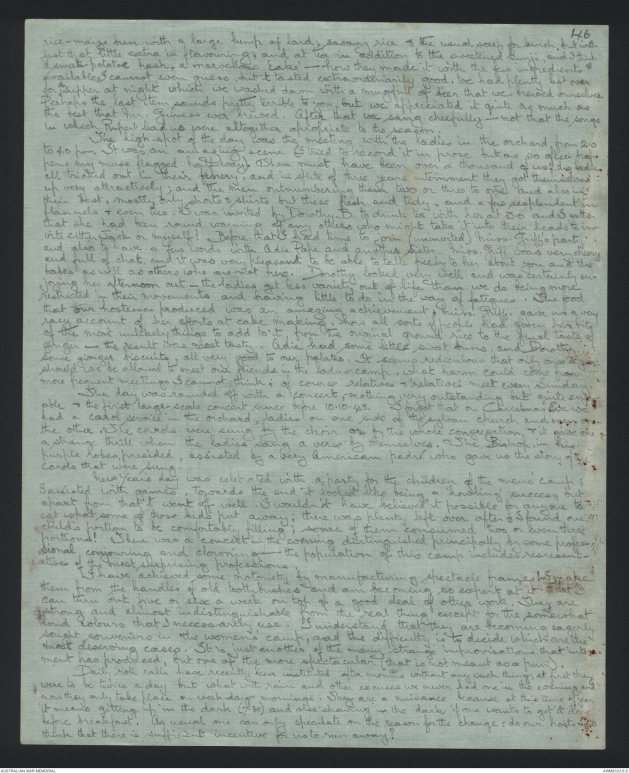 46
rice-maize bun with a large lump of lard; savoury rice & the usual soup for lunch, but with
just that little extra in flavouring; and at tea in addition to the sweetened kunji, and I think
a sweet-potatoe hash, a marvellous cake — how they made it with the few ingredients
available I cannot even guess, but it tasted extraordinarily good. We had plenty left over
for supper at night which we washed down with a mugful of beer that we brewed ourselves
Perhaps the last item sounds pretty terrible to you, but we appreciated it quite as much as
the best that Mr. Guiness ever brewed. After that we sang cheerfully — not that the songs
in which Rupert lead us were altogether apropriate to the season.
The high spot of the day was the meeting with the ladies in the orchard, from 2.0
to 4.0 pm. It was an amusing scene. (I tried to record it in prose but as so often
pens my muse flagged half-way). There must have been over a thousand of us
all tricked out in their finery, and in spite of three years internment they
up very attractively; and the men outnumbering them two or three to one and also in
their best, mostly only shorts & shirts but these fresh and tidy, and a few resplendent in
flannels & even ties. I was invited by Dorothy B to drink tea with her at 3.0 and I gather
that she had been round warning off any others who might take it into their heads to in-
vite either Jack or myself! Before that I had time to join (uninvited) Miss Griff's party
and also to have a few words with Adis Pahe and another sister. Miss Griff was very cheery
and full of chat, and it was very pleasant to be able to talk freely to her about you and the
babes as well as others who are not here. Dorothy looked very well, and was certainly en-
joying her afternoon out — the ladies get less variety out of life than we do being more
restricted in their movements and having little to do in the way of fatigues. The food
that our hostesses produced was an amazing achievement; Miss Griff gave us a very
racy account of her efforts at cake making, how all sorts of people had given her bits
of the most unlikely things to add to it from the original ground rice to the final taste of
ginger — the result was most tasty. Adis had some little sweet buns, and Dorothy
some ginger biscuits, all very good to our palates. It seems rediculous that only once a year
should we be allowed to meet our friends in the ladies camp, what harm could come from
more frequent meetings I cannot think; of course relatives & 'relatives' meet every Sunday.
The day was rounded off with a concert, nothing very outstanding but quite enjoy-
able & the first large-scale concert since before 10-10-43. I forgot that on Christmas Eve we
had a carol service in the orchard, ladies on one side of the sylvan church and men on
the other. The carols were sung by the choir or by the whole congregation & it gave one
a strange thrill when the ladies sang a verse by themselves. The Bishop, in his
purple robes, presided, assisted by a very American padre who gave us the story of the
carols that were sung.
New years day was celebrated with a party for the children of the mens camp;
I assisted with games, towards the end it looked like being a howling success, but
apart from that it went off well. I wouldn't have believed it possible for anyone to
eat what some of those kids put away; there was plenty left over after & I found one
child's portion to be comfortably filling; some of them consumed two or even three
portions! There was a concert in the evening distinguished principally by some profes-
sional conjouring and clowning — the population of this camp includes represent-
atives of the most surprising professions.
I have achieved some notoriety by manufacturing spectacle frames. I make
them from the handles of old tooth brushes and am becoming so expert at it that I
can turn out five or six a week on top of a good deal of other work. They are
strong and almost indistinguishable from the real thing except for the somewhat
loud colours that I necessarily use. I understand that they are becoming eagerly
sought souvenirs in the women's camp, and the difficulty is to decide which are the
most deserving cases. It is just another of the many strange improvisations that intern-
ment has produced, but one of the more spectacular (that is not meant as a pun).
Daily roll calls have recently been instituted after months without any such thing; at first they
were to be twice a day but what with rain and other excuses we never had one in the evening and
now they only take place on week-day mornings. They are a nuisance because at this time of year
it means getting up in the dark (7.30) and also shaving in the dark if one wants to get it done
before breakfast. As usual one can only speculate on the reason for the change; do our hosts
think that there is sufficient incentive for us to run away?
AUSTRALIAN WAR MEMORIAL